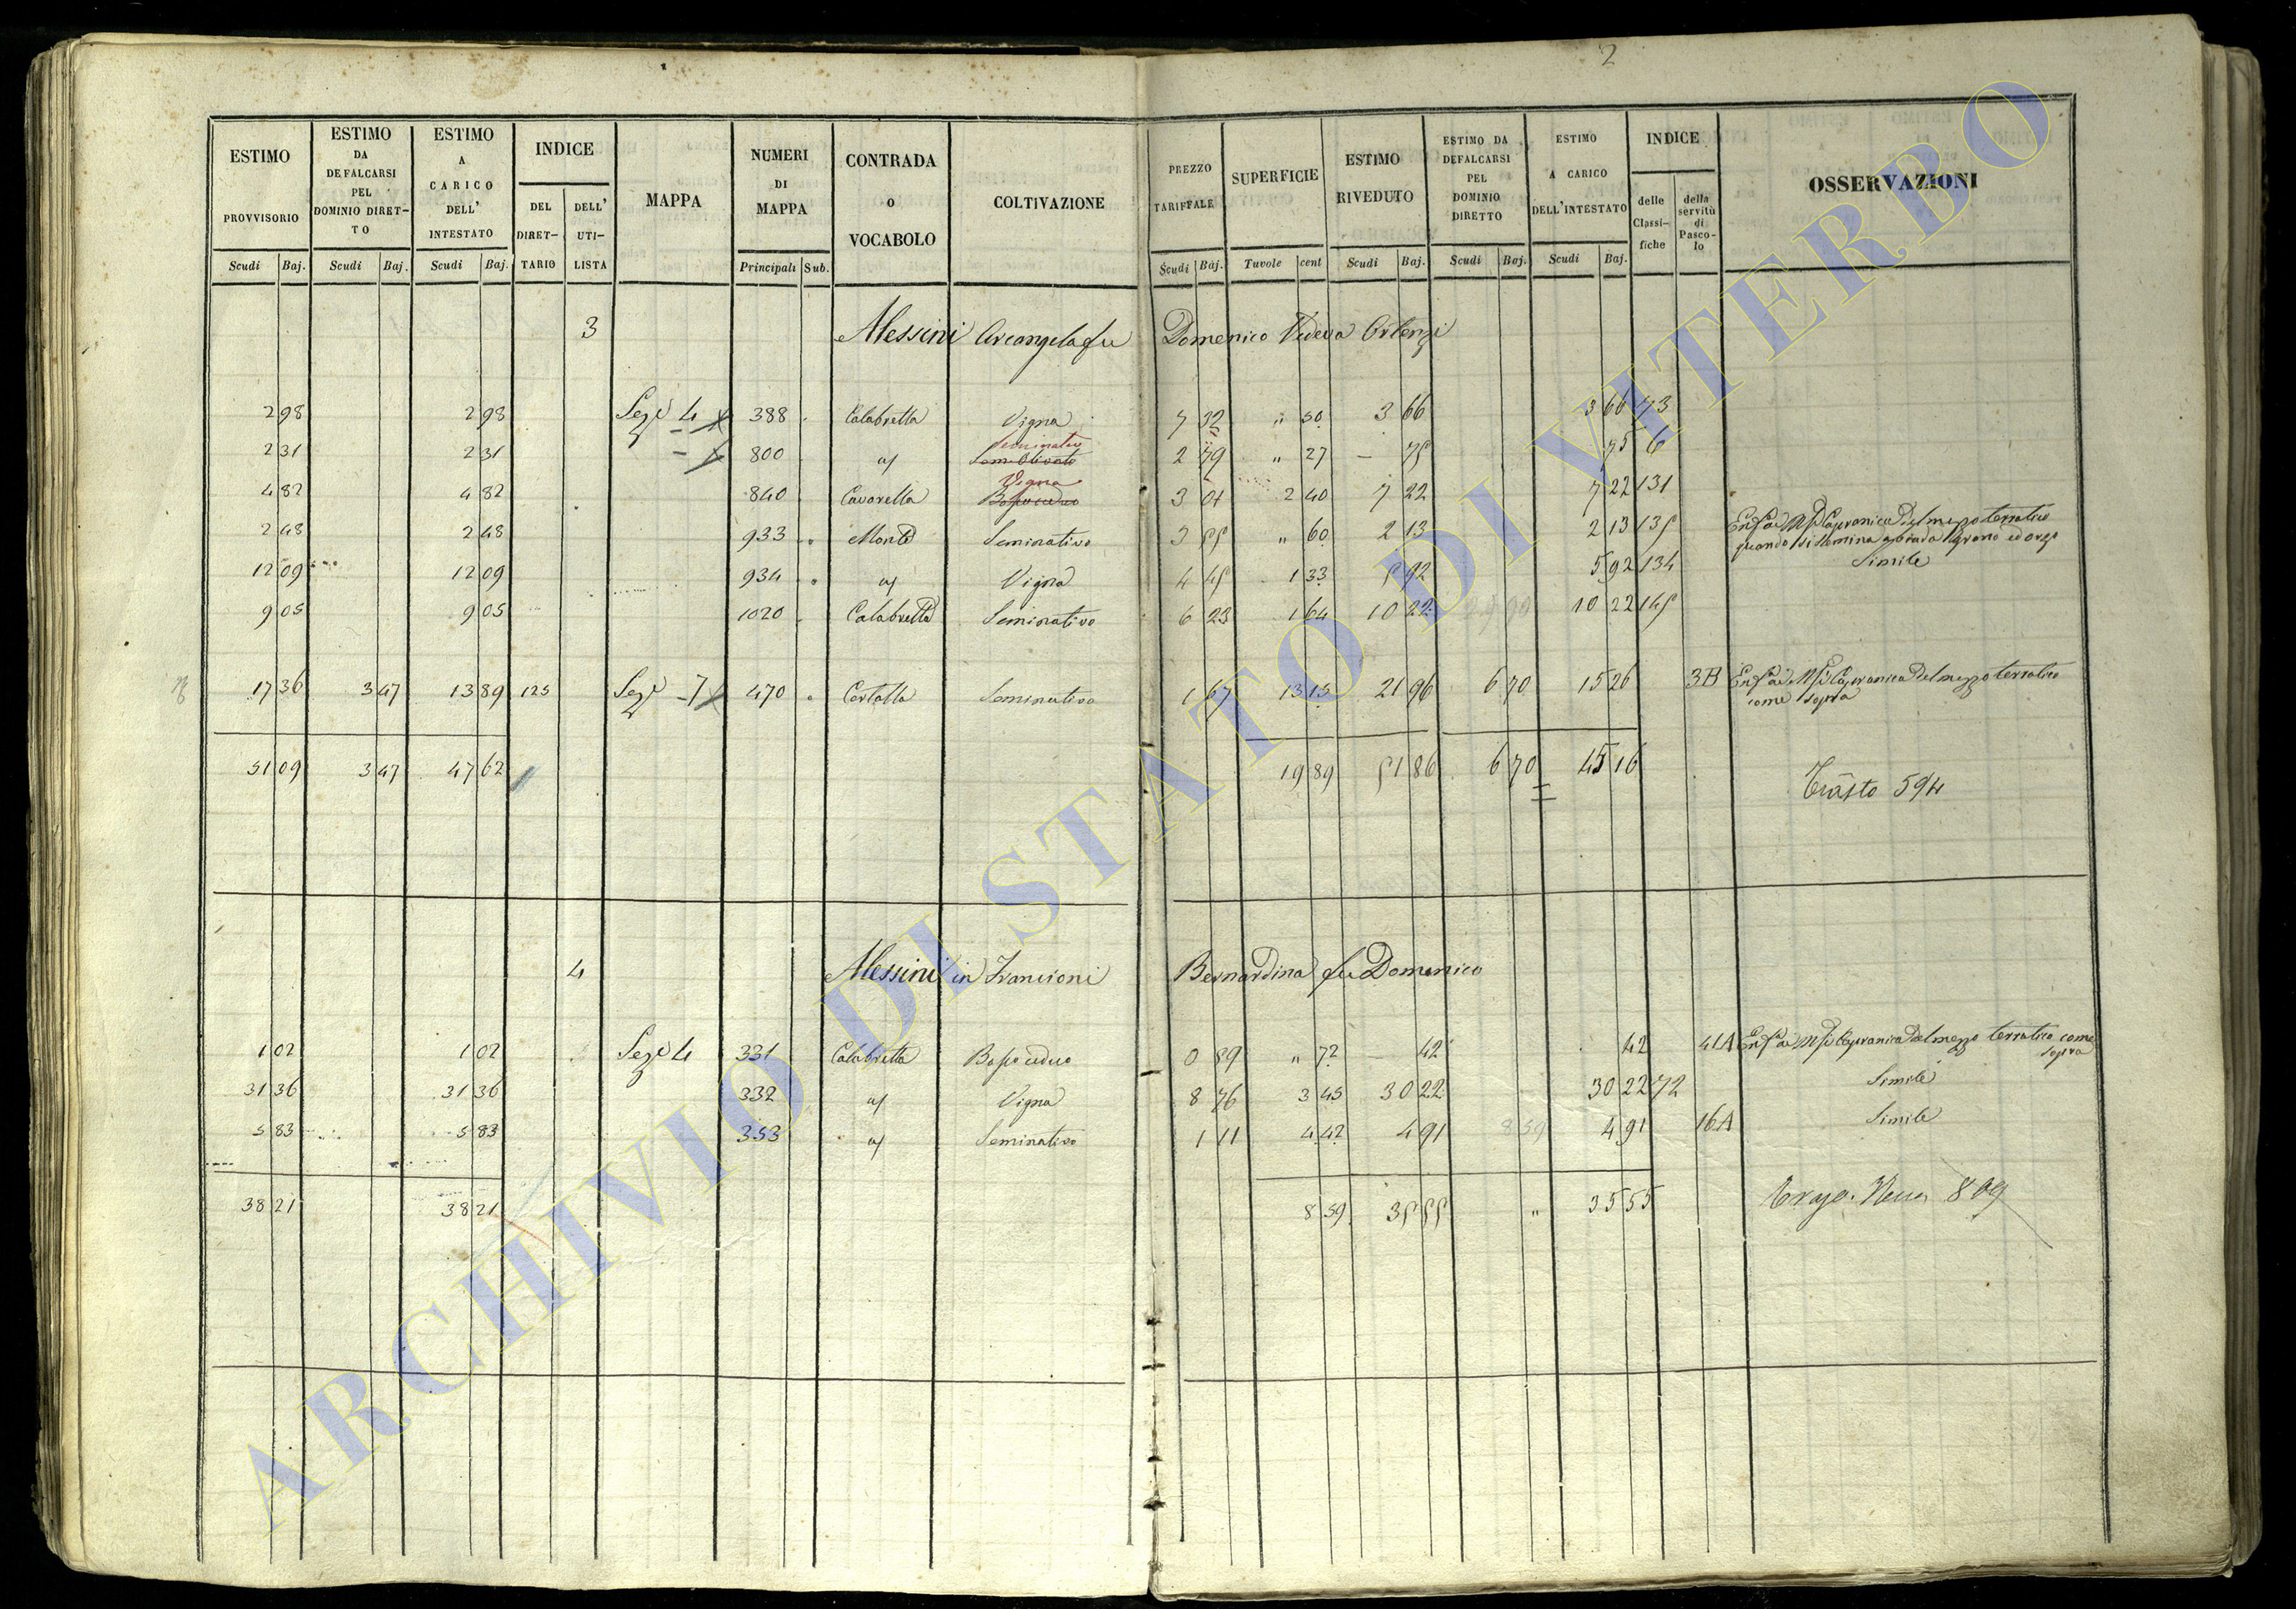 2
ESTIMO PROVVISORIO | ESTIMO DA DEFALCARSI PEL DOMINIO DIRET-TO | ESTIMO A CARICO DELL' INTESTATO | INDICE DEL DIRET-TARIO | DELL' UTI-LISTA | MAPPA | NUMERI DI MAPPA | CONTRADA O VOCABOLO | COLTIVAZIONE | PREZZO TARIFFALE | SUPERFICIE | ESTIMO RIVEDUTO | ESTIMO DA DEFALCARSI PEL DOMINIO DIRETTO | ESTIMO A CARICO DELL'INTESTATO | INDICE delle Classi-fiche | della servitù di Pasco-lo | OSSERVAZIONI
Scudi Baj. | Scudi Baj. | Scudi Baj. | Principali Sub. | Scudi Baj. | Tavole cent | Scudi Baj. | Scudi Baj. | Scudi Baj.
3 Alessini Arcangela fu Domenico Vedova Ortenzi
2 98 | 2 98 | Sezе 4 | 388 | Calabretta | Vigna | 7 32 | " 50 | 3 66 | 3 66 | 73
2 31 | 2 31 | 800 | Seminativo | 2 79 | " 27 | 75 | 75 | 6
4 82 | 4 82 | 840 | Cavarella | Vigna | 3 01 | 2 40 | 7 22 | 7 22 | 131
2 48 | 2 48 | 933 | Monte | Seminativo | 3 55 | " 60 | 2 13 | 2 13 | 135 | Capranica del mezzo terratico
quando si semina a biada grano ed orzo
12 09 | 12 09 | 934 | Vigna | 4 45 | 1 33 | 5 92 | 5 92 | 134 | Simile
9 05 | 9 05 | 1020 | Calabretta | Seminativo | 6 23 | 1 64 | 10 22 | 10 22 | 145
17 36 | 3 47 | 13 89 | 125 | Seze 7 | 470 | Seminativo | 1 67 | 13 15 | 21 96 | 6 70 | 15 26 | 3B | Capranica del mezzo terratico
come sopra
51 09 | 3 47 | 47 62 | 19 89 | 51 86 | 6 70 | 45 16 | 594
4 Alessini in Francioni Bernardina fu Domenico
1 02 | 1 02 | Seze 4 | 331 | Calabretta | Bosco ceduo | 0 59 | " 72 | 42 | 42 | 41A | Capranica del mezzo terratico come
sopra
31 36 | 31 36 | 332 | Vigna | 8 76 | 3 45 | 30 22 | 30 22 | 72 | Simile
5 83 | 5 83 | 353 | Seminativo | 1 11 | 4 42 | 4 91 | 4 91 | 16A | Simile
38 21 | 38 21 | 8 59 | 35 55 | " | 35 55
ARCHIVIO DI STATO DI VITERBO